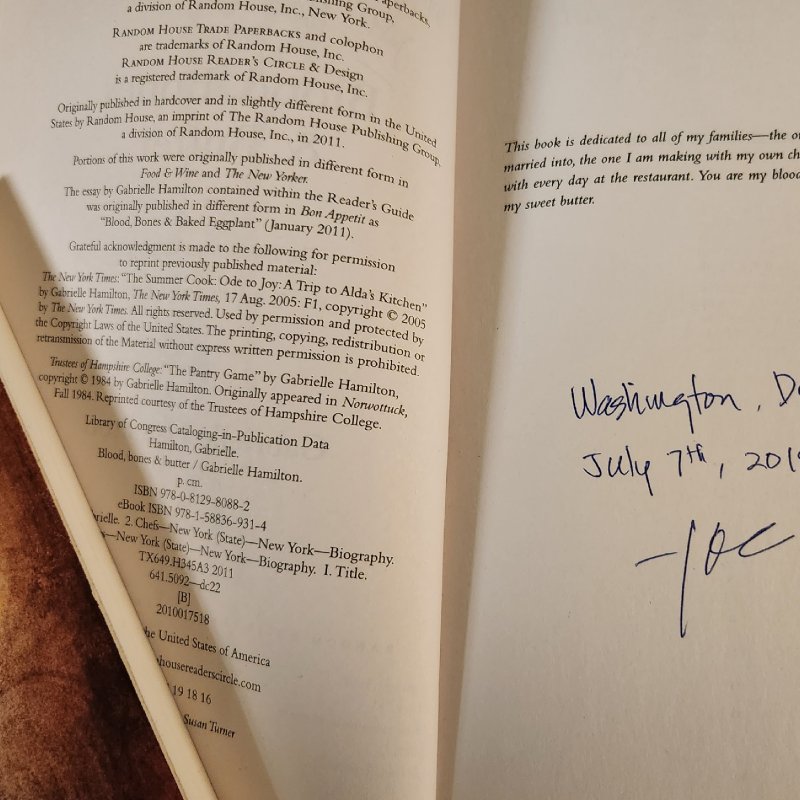 a division of Random House, Inc., New York.
RANDOM HOUSE TRADE PAPERBACKS and colophon
are trademarks of Random House, Inc.
RANDOM HOUSE READER'S CIRCLE & Design
is a registered trademark of Random House, Inc.
Originally published in hardcover and in slightly different form in the United
States by Random House, an imprint of The Random House Publishing Group,
a division of Random House, Inc., in 2011.
Portions of this work were originally published in different form in
Food & Wine and The New Yorker.
The essay by Gabrielle Hamilton contained within the Reader's Guide
was originally published in different form in Bon Appetit as
"Blood, Bones & Baked Eggplant" (January 2011).
Grateful acknowledgment is made to the following for permission
to reprint previously published material:
The New York Times: "The Summer Cook: Ode to Joy: A Trip to Alda's Kitchen"
by Gabrielle Hamilton, The New York Times, 17 Aug. 2005: F1, copyright © 2005
by The New York Times. All rights reserved. Used by permission and protected by
the Copyright Laws of the United States. The printing, copying, redistribution or
retransmission of the Material without express written permission is prohibited.
Trustees of Hampshire College: "The Pantry Game" by Gabrielle Hamilton,
copyright © 1984 by Gabrielle Hamilton. Originally appeared in Norwottuck,
Fall 1984. Reprinted courtesy of the Trustees of Hampshire College.
Library of Congress Cataloging-in-Publication Data
Hamilton, Gabrielle.
Blood, bones & butter / Gabrielle Hamilton.
p. cm.
ISBN 978-0-8129-8088-2
eBook ISBN 978-1-58836-931-4
2. Chefs—New York (State)—New York—Biography.
—New York (State)—New York—Biography. I. Title.
TX649.H345A3 2011
641.5092—dc22
[B]
2010017518
the United States of America
19 18 16
Susan Turner
This book is dedicated to all of my families—the
married into, the one I am making with my own
with every day at the restaurant. You are my blood
my sweet butter.
Washington,
July 7th, 201